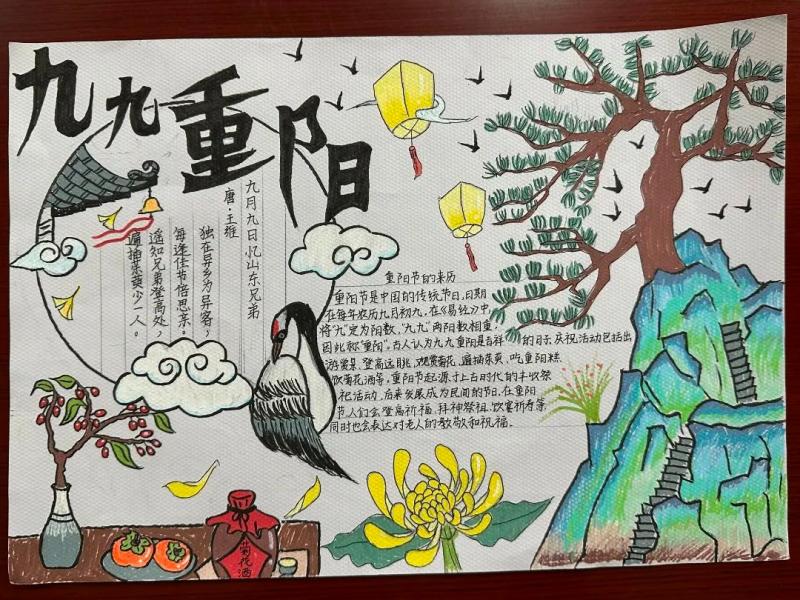 九九重阳
九月九日忆山东兄弟
唐·王维
独在异乡为异客,
每逢佳节倍思亲。
遥知兄弟登高处,
遍插茱萸少一人。
重阳节的来历
重阳节是中国的传统节日,日期
在每年农历九月初九,在《易经》中
将"九"定为阳数,"九九"两阳数相重,
因此称"重阳"。古人认为九九重阳是吉祥的日子,庆祝活动包括出
游赏景、登高远眺、观赏菊花、遍插茱萸、吃重阳糕、
饮菊花酒等,重阳节起源于上古时代的丰收祭
祀活动,后来发展成为民间的节日,在重阳
节,人们会登高祈福、拜神祭祖、饮宴祈寿等,
同时也会表达对老人的敬和祝福。
菊花酒